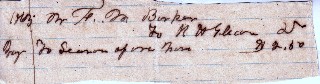 1863 Mr F. M Barker
To R W Gleason Dr
To Season of one horse $2.50